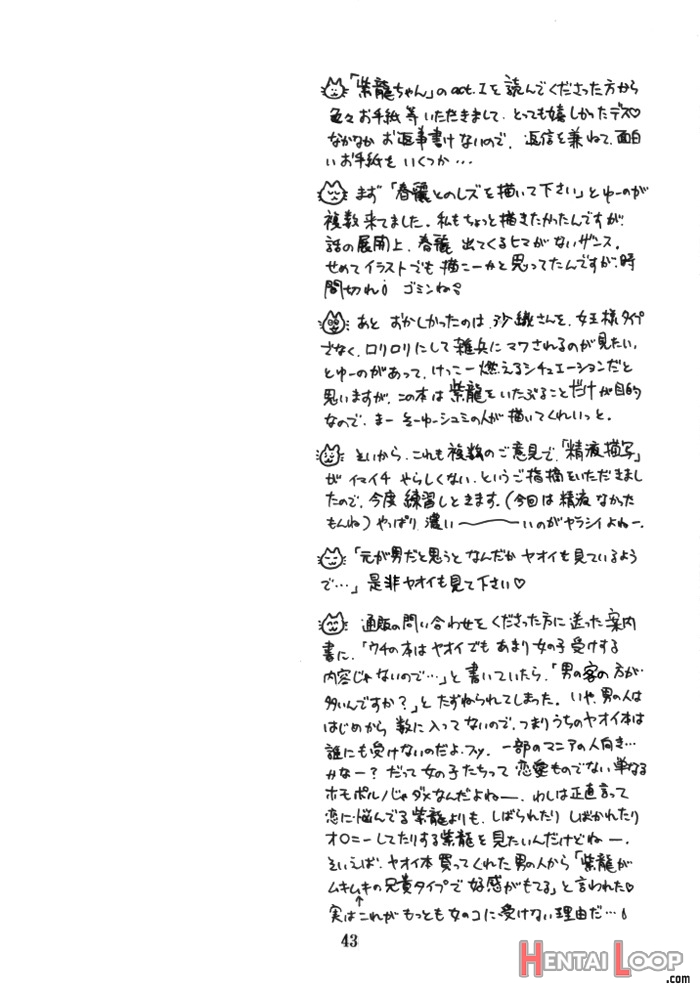 「紫龍ちゃん」のact.Iを読んでくださった方から
色々お手紙等いただきまして、とっても嬉しかったデス♡
なかなかお返事書けないので、返信を兼ねて、面白
いお手紙をいくつか…
まず「春麗とのレズを描いて下さい」とゆーのが
複数来てました。私もちょっと描きたかったんですが、
話の展開上、春麗出てくるヒマがないザンス。
せめてイラストでも描こーかと思ってたんですが、時
間切れ! ゴミンね
あと おかしかったのは、沙織さんを、女王様タイプ
でなく、ロリロリにして雑兵にマワされるのが見たい、
とゆーのがあって、けっこー燃えるシチュエーションだと
思いますが、この本は紫龍をいたぶることだけが目的
なので、まー そーゆーシュミの人が描いてくれいっと。
そいから、これも複数のご意見で、「精液描写」
がイマイチ やらしくない、というご指摘をいただきまし
たので、今度練習しときます。(今回は精液なかった
もんね)やっぱり、濃い〜〜いのがヤラシイよねー。
「元が男だと思うとなんだかヤオイも見ているよう
で…」是非ヤオイも見て下さい♡
通販の問い合わせをくださった方に送った案内
書に、「ウチの本はヤオイでもあまり女の子受けする
内容じゃないので…」と書いていたら、「男の客の方が
多いんですか?」とたずねられてしまった。いや、男の人は
はじめから数に入ってないので、つまりうちのヤオイ本は
誰にも受けないのだよ、フッ。一部のマニアの人向き…
かなー?だって女の子たちって恋愛ものでない単なる
ホモポルノじゃダメなんだよねー。わしは正直言って
恋に悩んでる紫龍よりも、しばられたりしばかれたり
オ○ニーしてたりする紫龍を見たいんだけどねー。
そいえば、ヤオイ本買ってくれた男の人から「紫龍が
ムキムキの兄貴タイプで好感がもてる」と言われた♡
実は↑これがもっとも女のコに受けない理由だ…!
43
HENTAI LOOP
.com